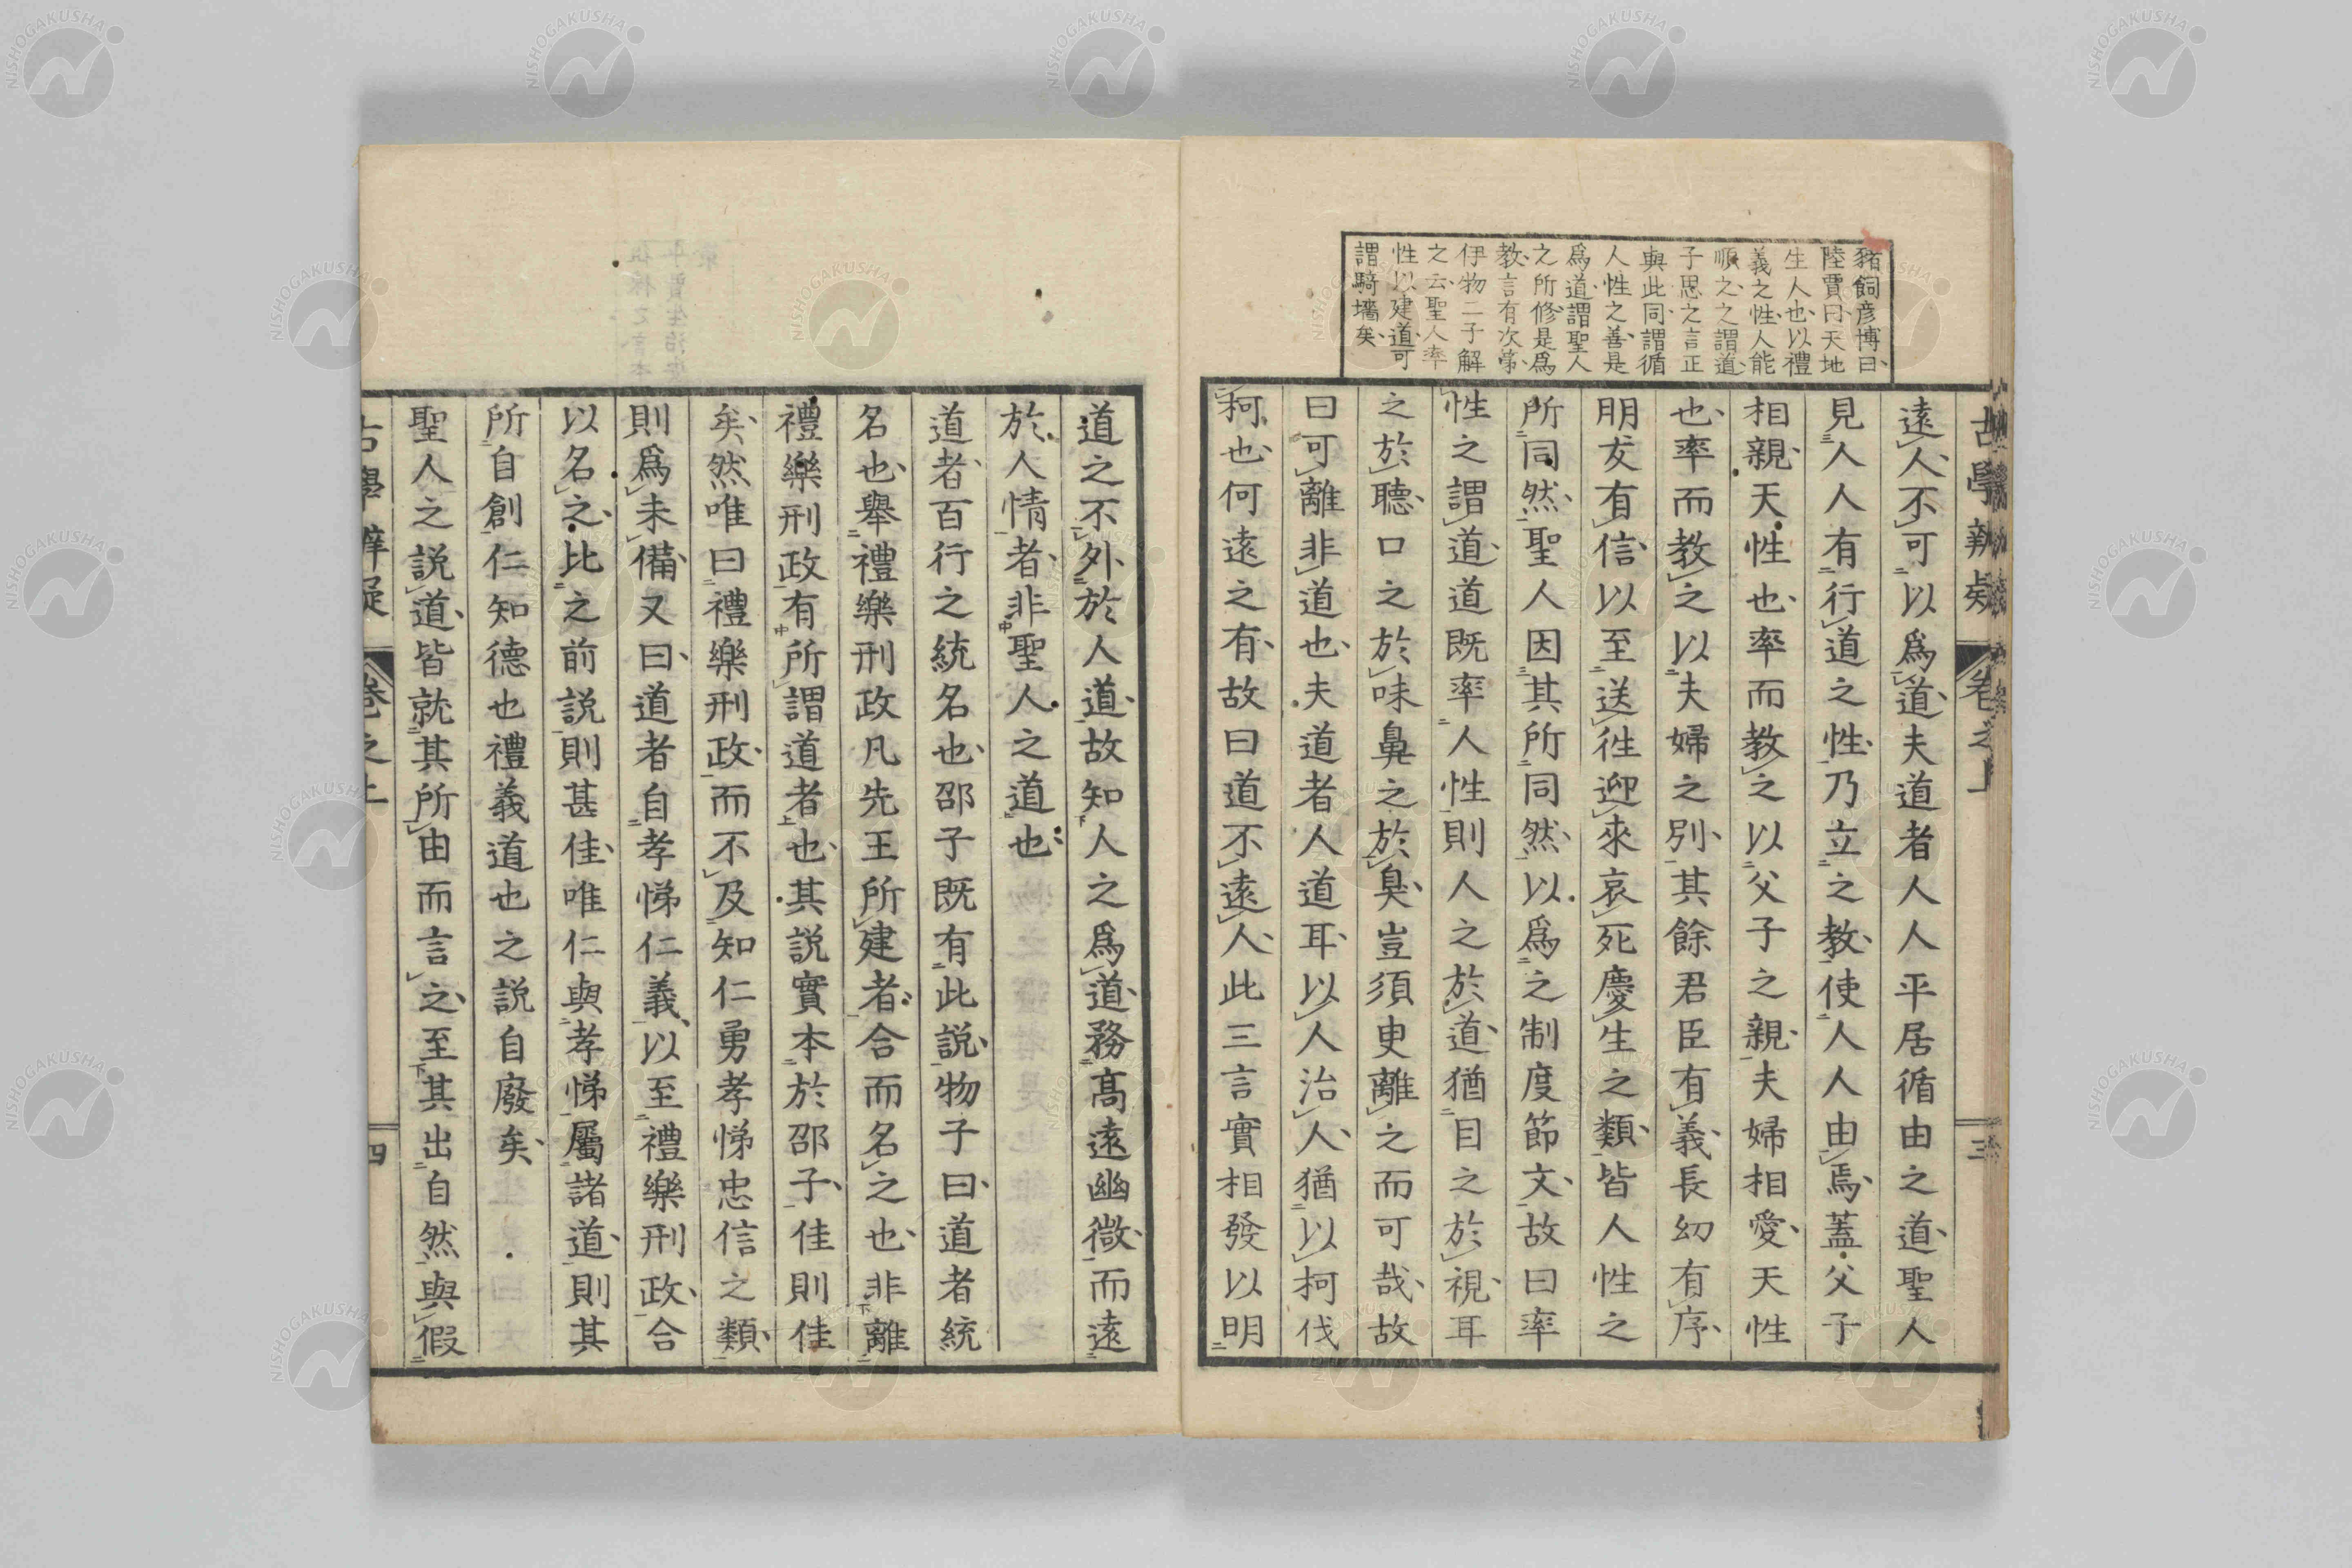 豬飼彦博曰
陸賈曰天地
生人也以禮
義之性人能
順之之謂道
子思之言正
與此同謂循
人性之善是
爲道謂聖人
之所修是爲
教言有次第
伊物二子解
之云聖人率
性以建道可
謂騎墻矣
卷之上
三
遠人不可以爲道夫道者人人平居循由之道聖人
見人人有行道之性乃立之教使人人由焉蓋父子
相親天性也率而教之以父子之親夫婦相愛天性
也率而教之以夫婦之別其餘君臣有義長幼有序
朋友有信以至送徃迎來哀死慶生之類皆人性之
所同然聖人因其所同然以爲之制度節文故曰率
性之謂道道既率人性則人之於道猶目之於視耳
之於聽口之於味鼻之於臭豈須臾離之而可哉故
曰可離非道也夫道者人道耳以人治人猶以柯伐
柯也何遠之有故曰道不遠人此三言實相發以明
道之不外於人道故知人之爲道務高遠幽微而遠
於人情者非聖人之道也
道者百行之統名也邵子既有此説物子曰道者統
名也舉禮樂刑政凡先王所建者合而名之也非離
禮樂刑政有所謂道者也其説實本於邵子佳則佳
矣然唯曰禮樂刑政而不及知仁勇孝悌忠信之類
則爲未備又曰道者自孝悌仁義以至禮樂刑政合
以名之比之前説則甚佳唯仁與孝悌屬諸道則其
所自創仁知德也禮義道也之説自廢矣
聖人之説道皆就其所由而言之至其出自然與假
古學辨疑
卷之上
四
NISHOGAKUSHA